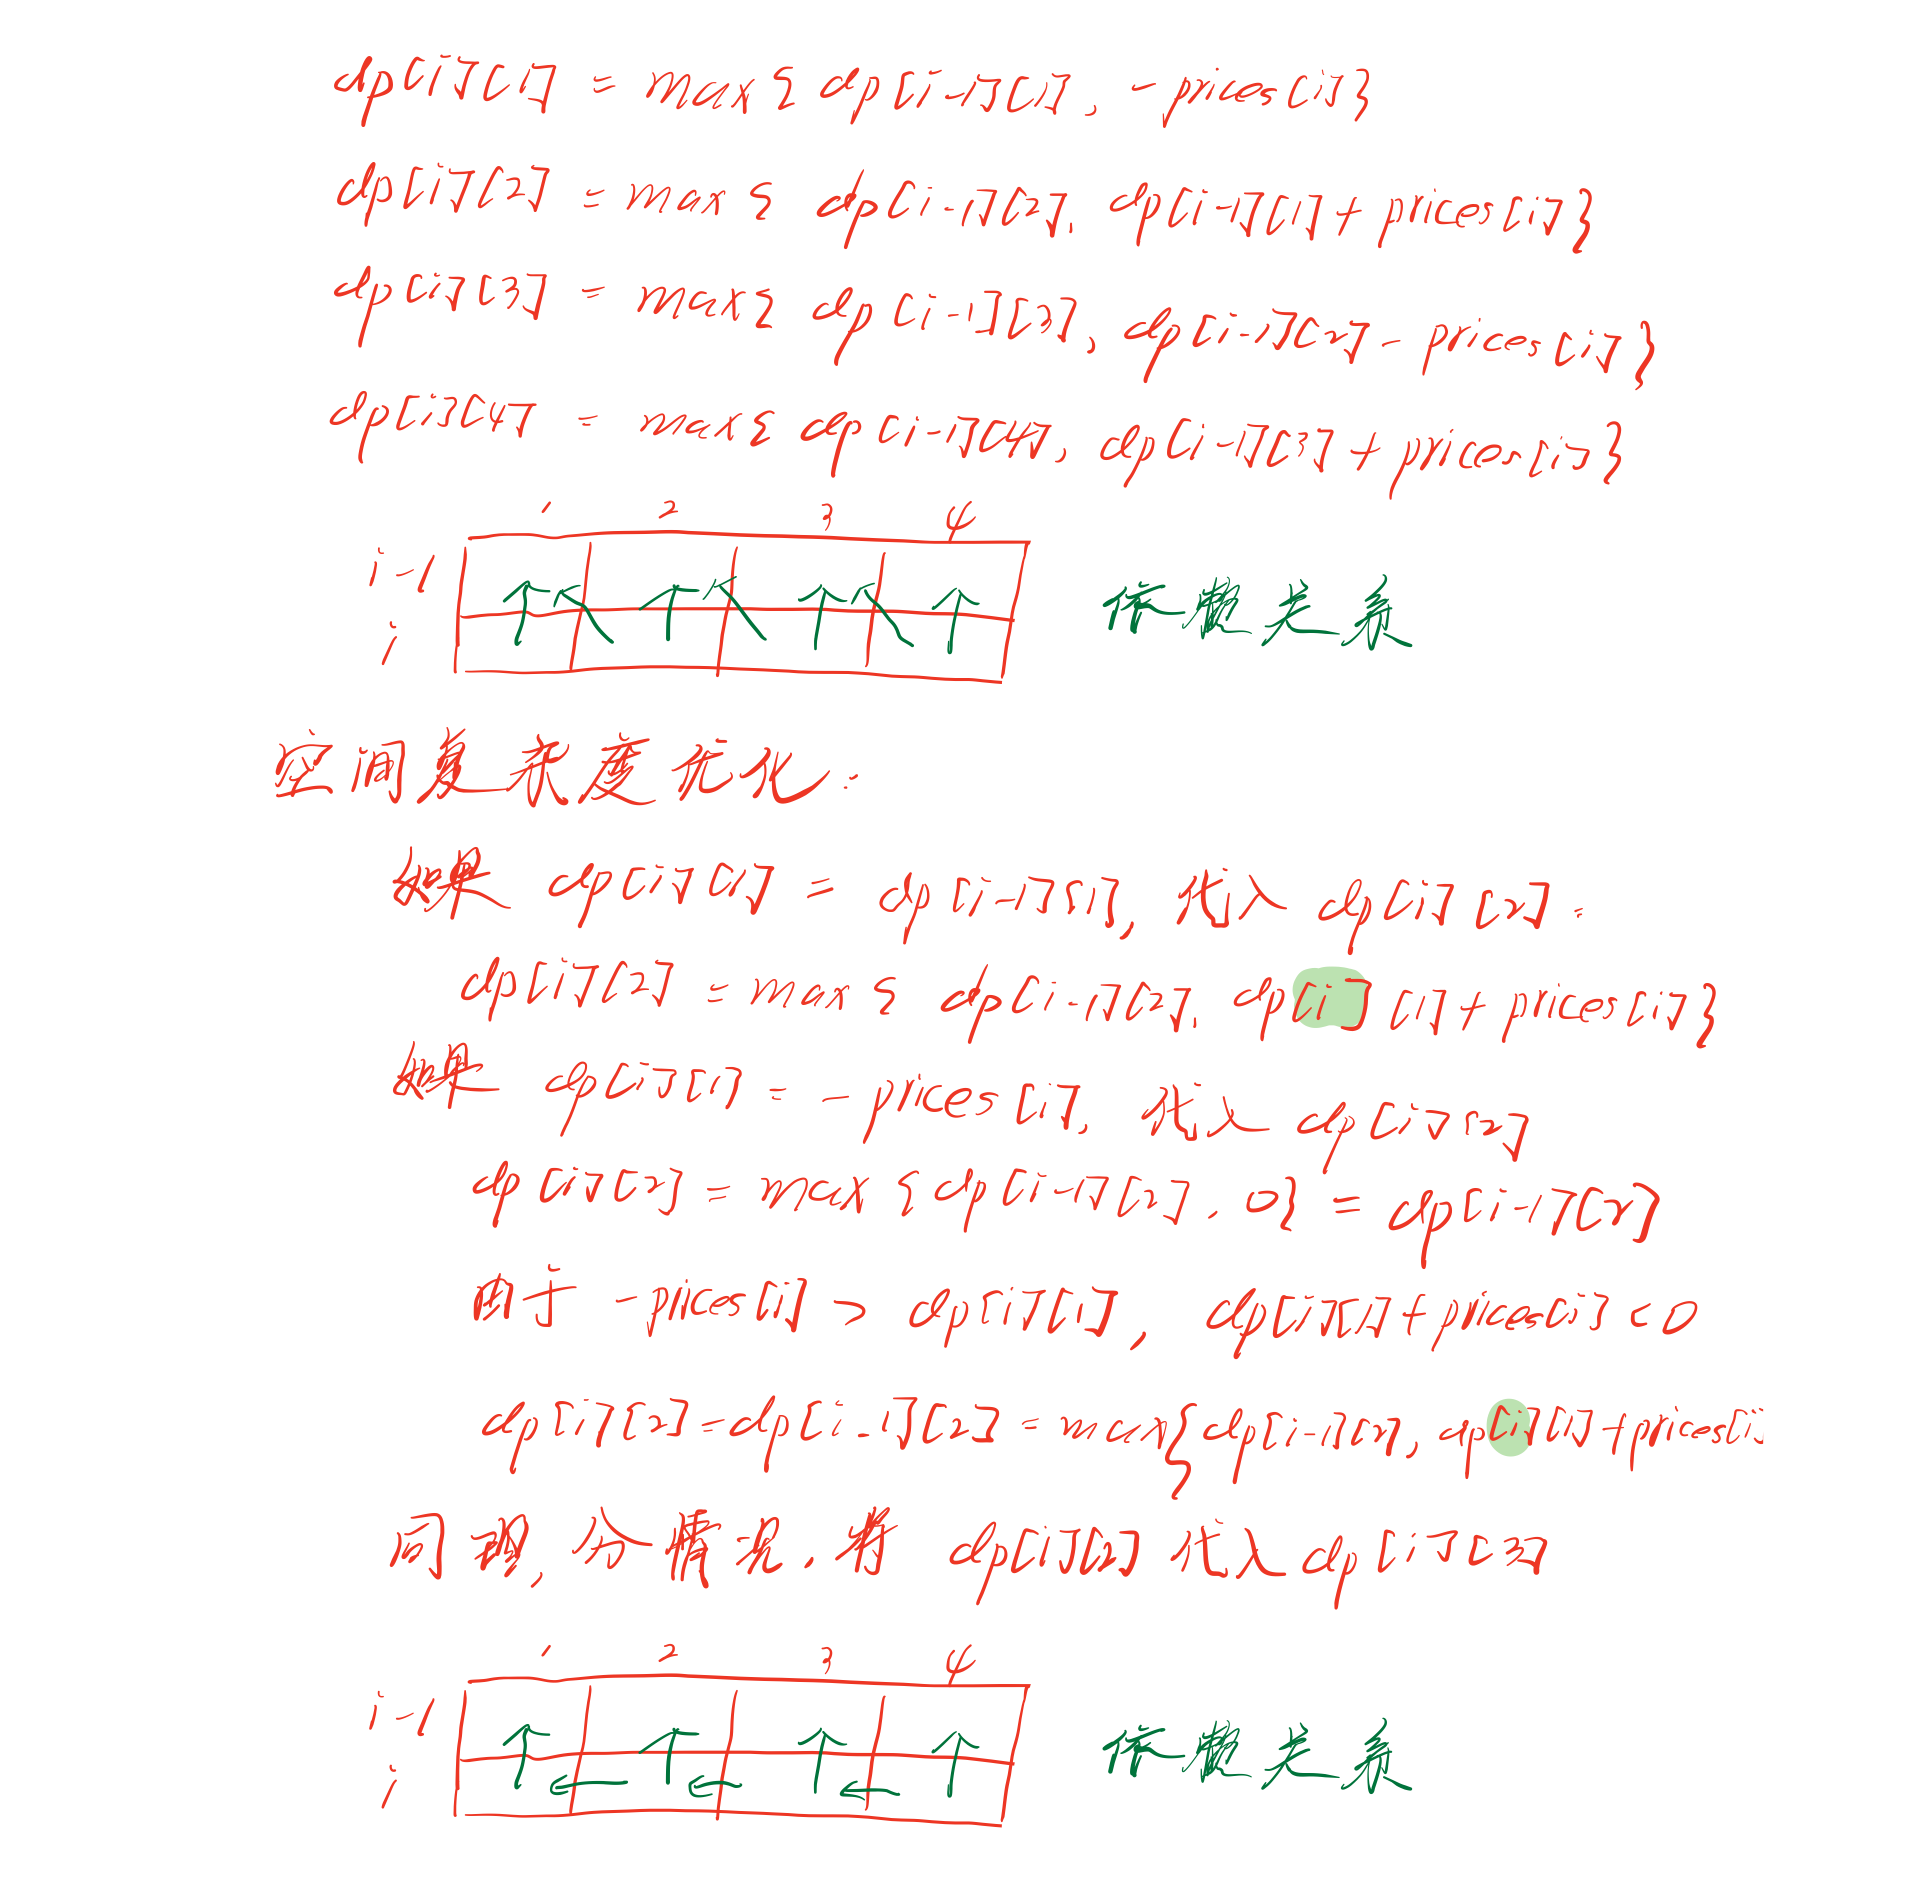 dp[i][1] = max{ dp[i-1][1], -prices[i]}
dp[i][2] = max{ dp[i-1][2], dp[i-1][1]+prices[i]}
dp[i][3] = max{ dp[i-1][3], dp[i-1][2]-prices[i]}
dp[i][4] = max{ dp[i-1][4], dp[i-1][3]+prices[i]}
1 2 3 4
i-1
i
依赖关系
空间复杂度优化:
如果 dp[i][1] = dp[i-1][1], 代入 dp[i][2]:
dp[i][2] = max{ dp[i-1][2], dp[i][1]+prices[i]}
如果 dp[i][1] = -prices[i], 代入 dp[i][2]
dp[i][2] = max{dp[i-1][2], 0} = dp[i-1][2]
由于 -prices[i] > dp[i][1], dp[i][1]+prices[i]<0
dp[i][2]=dp[i-1][2]=max{dp[i-1][2], dp[i][1]+prices[i]
同理, 分情况, 将 dp[i][2] 代入 dp[i][3]
1 2 3 4
i-1
i
依赖关系